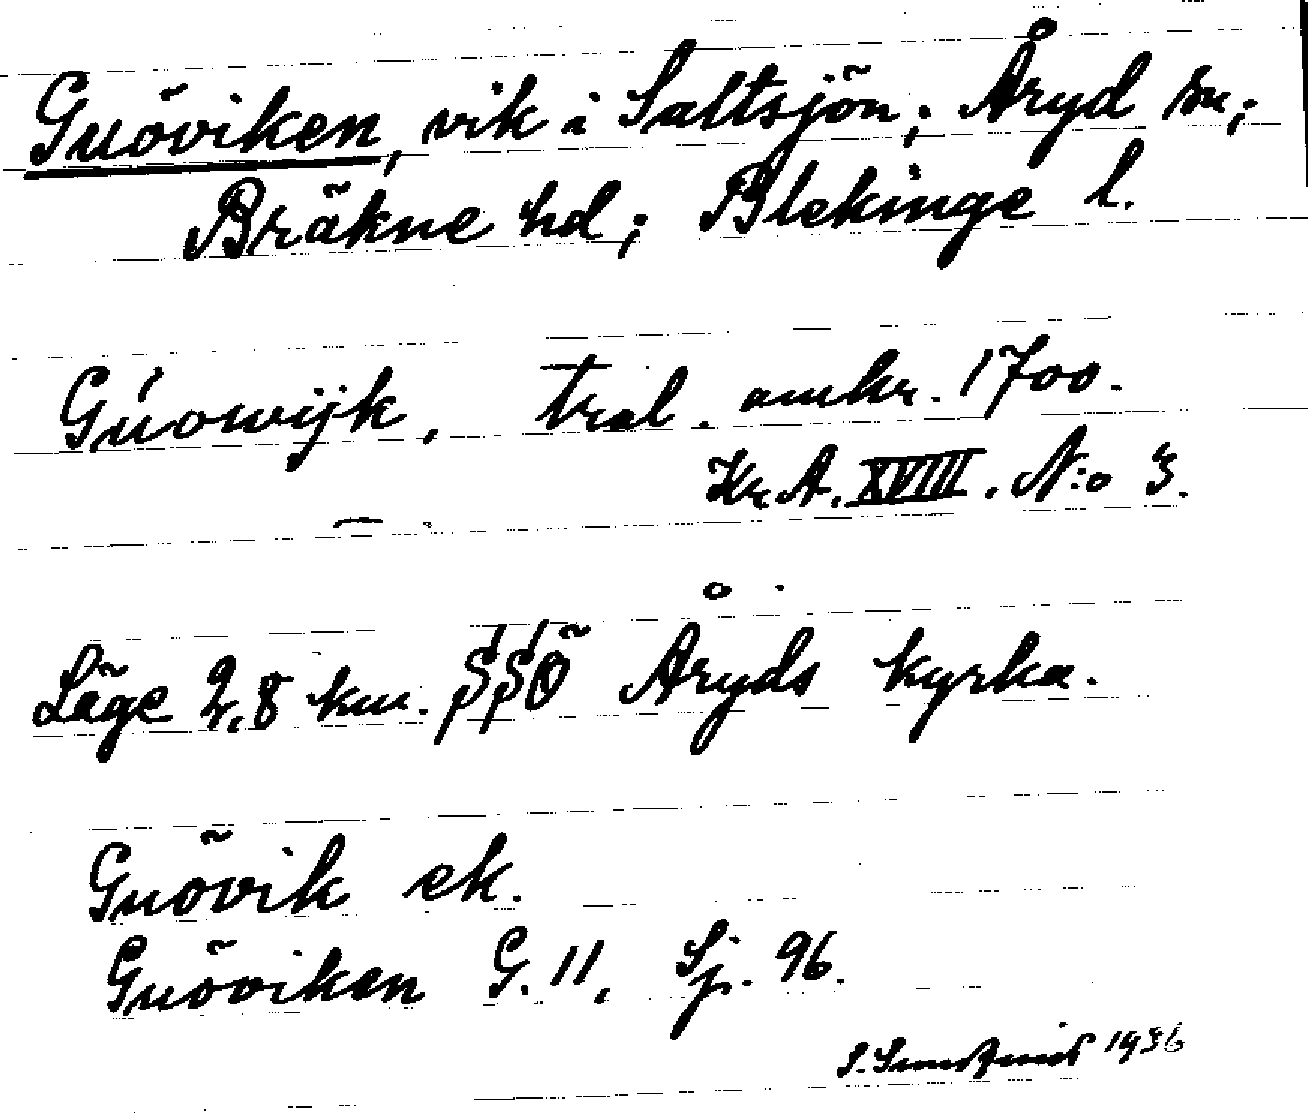 Guöviken, vik i Saltsjön; Åryd sn;
Bräkne hd; Blekinge l.
Gúowijk, tral. omkr. 1700.
Kr. A. XVIII. N:o 3.
Läge 2,8 km. SSÖ Åryds kyrka.
Guövik ek.
Guöviken G. 11, Sj. 96.
1936